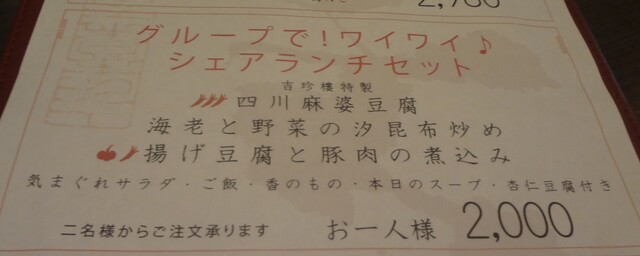 グループで!ワイワイ♪
シェアランチセット
吉珍樓特製
四川麻婆豆腐
海老と野菜の汐昆布炒め
揚げ豆腐と豚肉の煮込み
気まぐれサラダ・ご飯・香のもの・本日のスープ・杏仁豆腐付き
二名様からご注文承ります お一人様 2,000